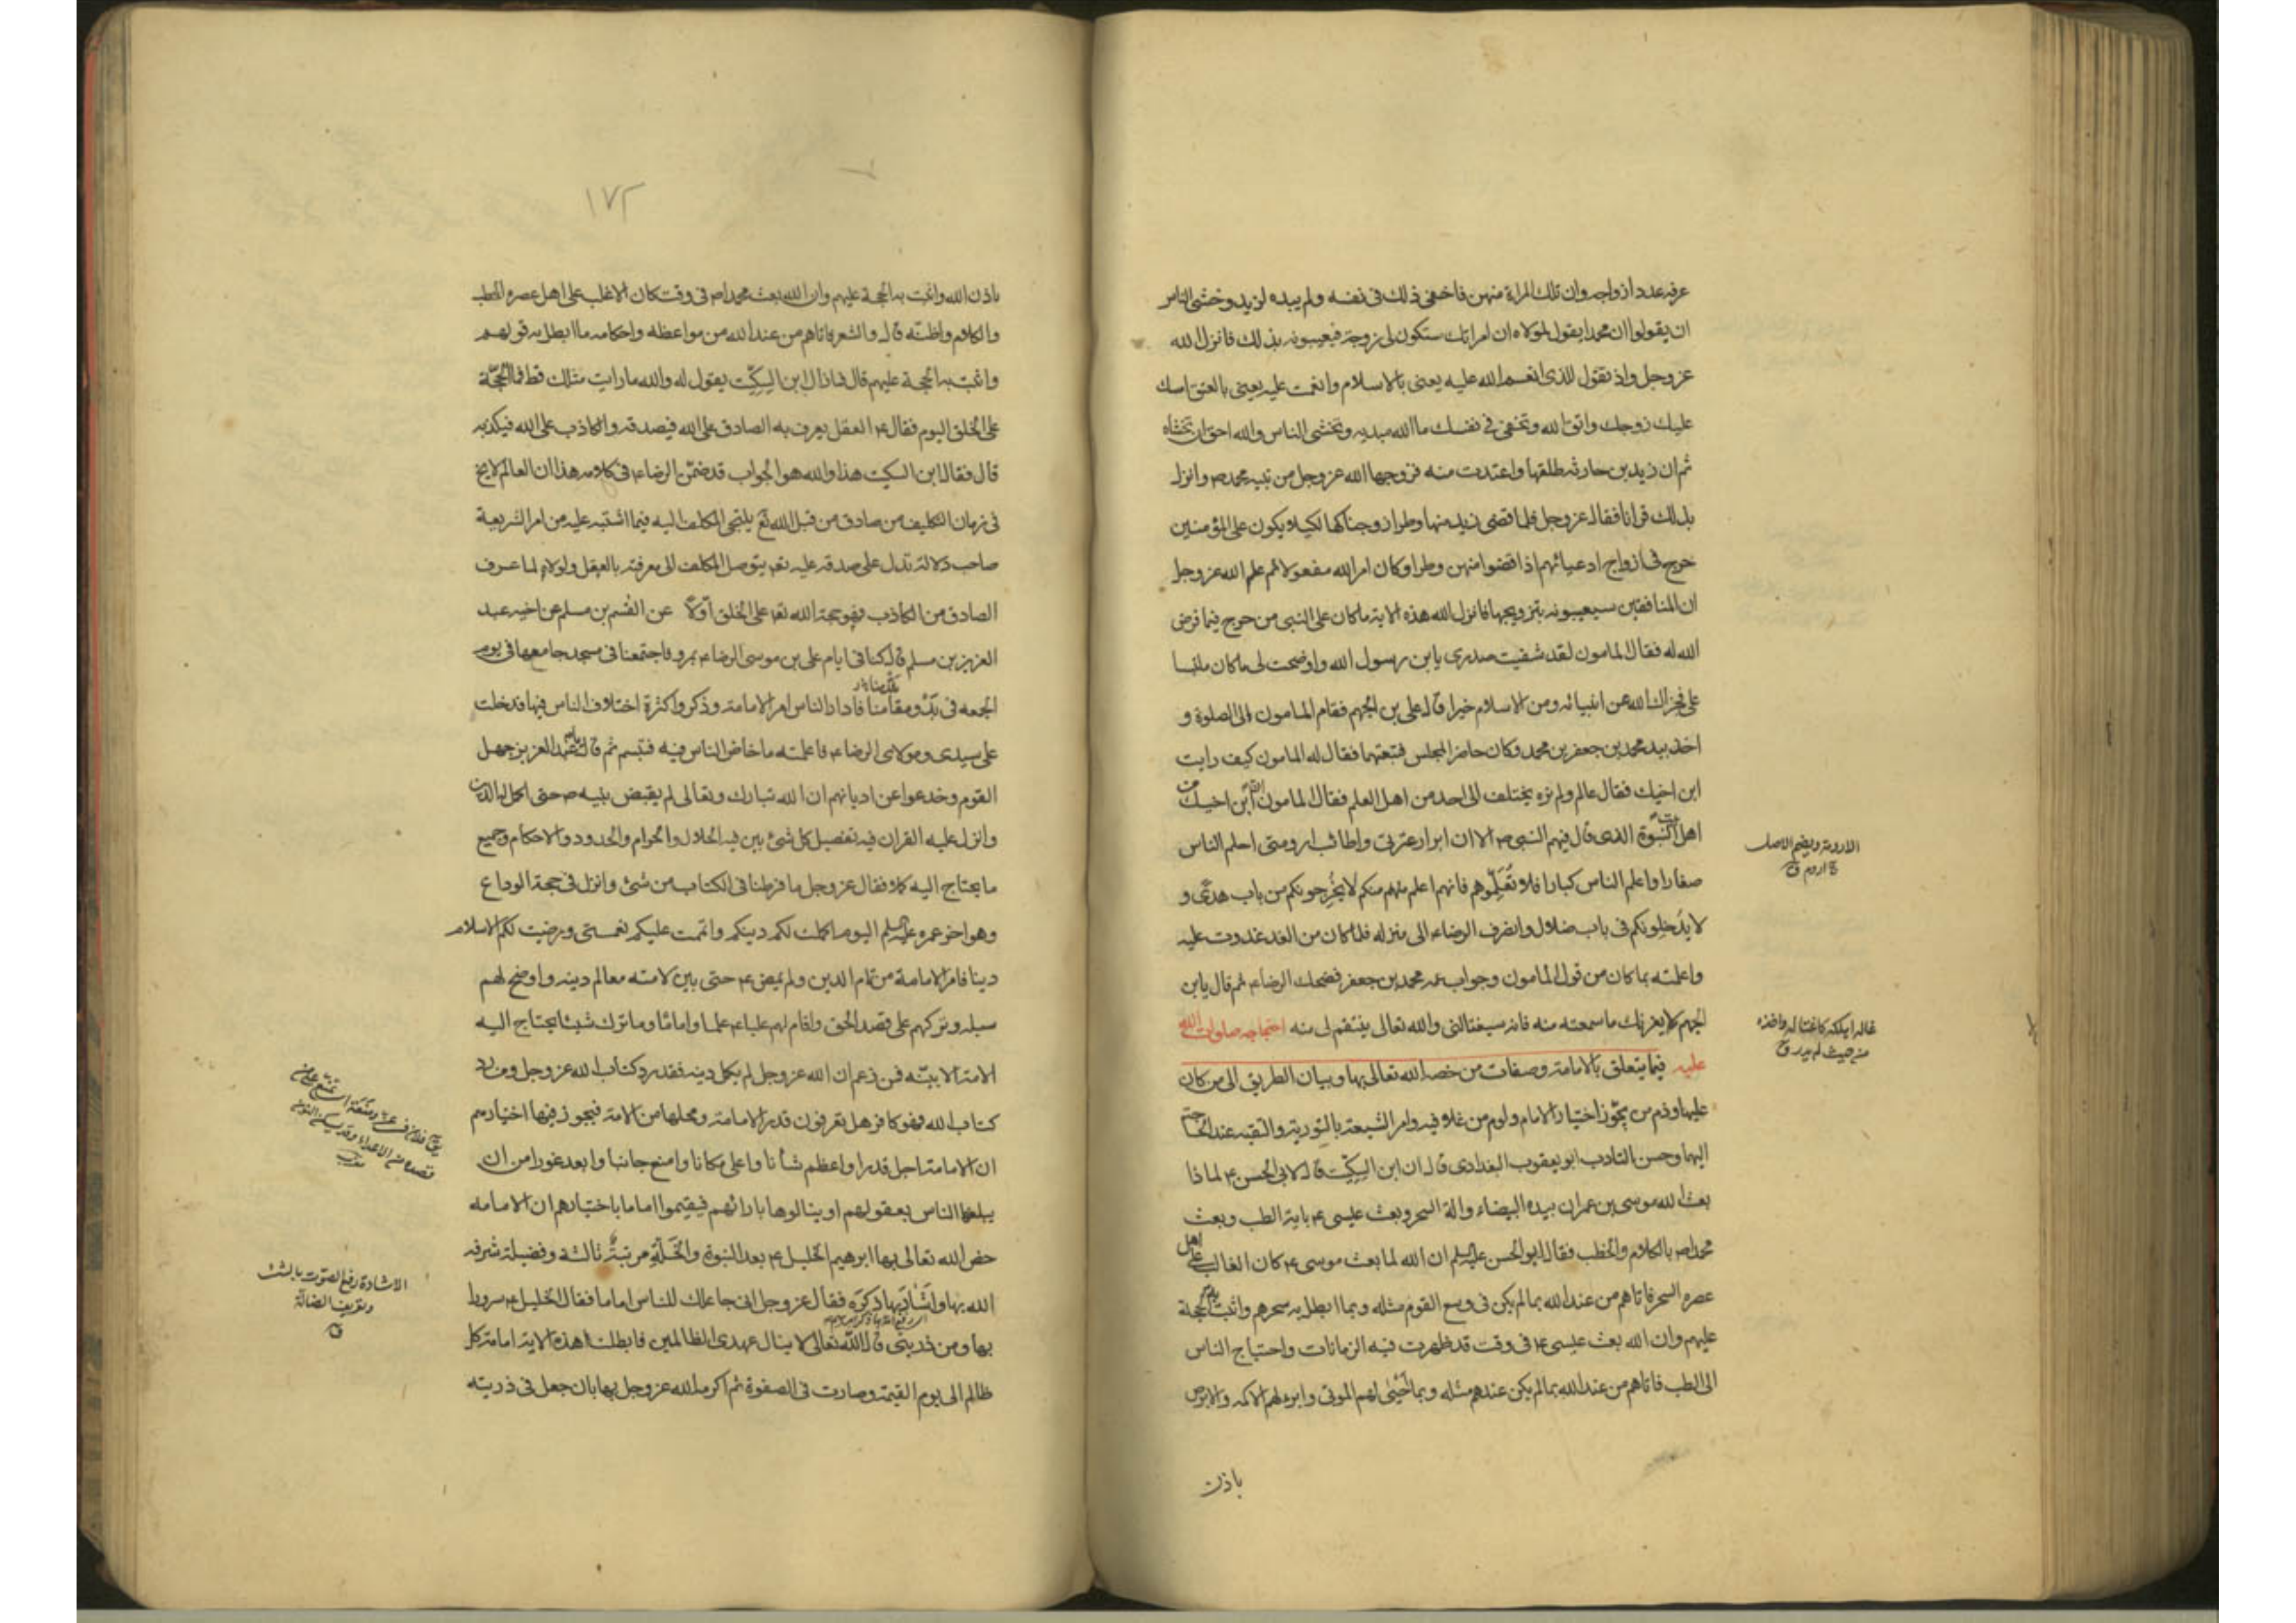 عرفه عدد ازواجه وان تلك المراة منهن فاخفى ذلك فى نفسه ولم يبده لزيد وخشى الناس
ان يقولوا ان محمدا يقول لمولاه ان امراتك ستكون لى زوجة فيعيبونه بذلك فانزل الله
عز وجل واذ تقول للذى انعم الله عليه يعنى بالاسلام وانعمت عليه يعنى بالعتق امسك
عليك زوجك واتق الله وتخفى فى نفسك ما الله مبديه وتخشى الناس والله احق ان تخشاه
ثم ان زيد بن حارثه طلقها واعتدت منه فزوجها الله عز وجل من نبيه محمد ص وانزل
بذلك قرانا فقال عز وجل فلما قضى زيد منها وطرا زوجناكها لكيلا يكون على المؤمنين
حرج فى ازواج ادعيائهم اذا قضوا منهن وطرا وكان امر الله مفعولا ثم علم الله عز وجل
ان المنافقين سيعيبونه بتزويجها فانزل الله هذه الاية ما كان على النبى من حرج فيما فرض
الله له فقال المامون لقد شفيت صدرى يابن رسول الله واوضحت لى ما كان ملتبسا
على فجزاك الله عن انبيائه ومن الاسلام خيرا قال على بن الجهم فقام المامون الى الصلوة و
اخذ بيد محمد بن جعفر بن محمد وكان حاضر المجلس فتبعتهما فقال له المامون كيف رايت
ابن اخيك فقال عالم ولم نره يختلف الى احد من اهل العلم فقال المامون ان ابن اخيك من
اهل بيت النبوة الذى قال فيهم النبى ص الا ان ابرار عترتى واطائب ارومتى احلم الناس
صغارا واعلم الناس كبارا فلا تُعَلِّموهم فانهم اعلم منكم لا يُخْرِجونكم من باب هدًى و
لا يُدخِلونكم فى باب ضلال وانصرف الرضاء الى منزله فلما كان من الغد غدوت عليه
واعلمته بما كان من قول المامون وجواب عمه محمد بن جعفر فضحك الرضاء ثم قال يابن
الجهم لا يغرنك ما سمعته منه فانه سيغتالنى والله تعالى ينتقم لى منه احتجاجه صلوات الله
عليه فيما يتعلق بالامامة وصفات من خصه الله تعالى بها وبيان الطريق الى من كان
عليها وذم من يجوّز اختيار الامام ولوم من غلا فيه وامر الشيعة بالتورية والتقية عند الحاجة
اليها وحسن التادب ابو يعقوب البغدادى قال ان ابن السِكِّيت قال لابى الحسن ع لماذا
بعث الله موسى بن عمران بيده البيضاء والة السحر وبعث عيسى ع باية الطب وبعث
محمدا ص بالكلام والخطب فقال ابو الحسن عليه السلم ان الله لما بعث موسى ع كان الغالب على اهل
عصره السحر فاتاهم من عند الله بما لم يكن فى وسع القوم مثله وبما ابطل به سحرهم واثبت به الحجة
عليهم وان الله بعث عيسى ع فى وقت قد ظهرت فيه الزمانات واحتياج الناس
الى الطب فاتاهم من عند الله بما لم يكن عندهم مثله وبما احيى لهم الموتى وابرء لهم الاكمه والابرص
باذن
الارومة ويضم الاصل
ج اروم ق
غاله اهلكه كاغتاله واخذه
من حيث لم يدر ق
١٧٢
باذن الله واثبت به الحجة عليهم وان الله بعث محمدا ص فى وقت كان الاغلب على اهل عصره الخطب
والكلام واظنه قال والشعر فاتاهم من عند الله من مواعظه واحكامه ما ابطل به قولهم
واثبت به الحجة عليهم قال فما زال ابن السِكِّيت يقول له والله ما رايت مثلك قط فما الحجّة
على الخلق اليوم فقال ع العقل يعرف به الصادق على الله فيصدقه والكاذب على الله فيكذبه
قال فقال ابن السكيت هذا والله هو الجواب قد ضمّن الرضاء فى كلامه هذا ان العالم لا يخ
فى زمان التكليف من صادق من قبل الله تع يلتجى المكلف اليه فيما اشتبه عليه من امر الشريعة
صاحب دلالة تدل على صدقه عليه تع يتوصل المكلف الى معرفته بالعقل ولولاه لما عرف
الصادق من الكاذب فهو حجة الله تع على الخلق اوّلًا عن القسم بن مسلم عن اخيه عبد
العزيز بن مسلم قال كنا فى ايام على بن موسى الرضاء بمرو فاجتمعنا فى مسجد جامعها فى يوم
الجمعه فى بَدْو مقدمنا فادار الناس امر الامامة وذكروا كثرة اختلاف الناس فيها فدخلت
على سيدى ومولاى الرضاء فاعلمته ما خاض الناس فيه فتبسم ثم قال يا عبد العزيز جهل
القوم وخدعوا عن اديانهم ان الله تبارك وتعالى لم يقبض نبيه ص حتى اكمل له الدين
وانزل عليه القران فيه تفصيل كل شئ بين فيه الحلال والحرام والحدود والاحكام وجميع
ما يحتاج اليه كلا فقال عز وجل ما فرطنا فى الكتاب من شئ وانزل فى حجة الوداع
وهو اخر عمره عليه السلم اليوم اكملت لكم دينكم واتممت عليكم نعمتى ورضيت لكم الاسلام
دينا فامر الامامة من تمام الدين ولم يمض ع حتى بين لامته معالم دينه واوضح لهم
سبله وتركهم على قصد الحق واقام لهم عليا ع علما واماما وما ترك شيئا يحتاج اليه
الامة الا بيّنه فمن زعم ان الله عز وجل لم يكمل دينه فقد رد كتاب الله عز وجل ومن رد
كتاب الله فهو كافر هل تعرفون قدر الامامة ومحلها من الامة فيجوز فيها اختيارهم
ان الامامة اجل قدرا واعظم شأنا واعلى مكانا وامنع جانبا وابعد غورا من ان
يبلغها الناس بعقولهم او ينالوها بارائهم فيقيموا اماما باختيارهم ان الامامه
خص الله تعالى بها ابرهيم الخليل ع بعد النبوة والخُلّة مرتبةً ثالثة وفضيلة شرفه
الله بها واشادَ بها ذِكرَه فقال عز وجل انى جاعلك للناس اماما فقال الخليل ع سرورا
بها ومن ذريتى قال الله تعالى لا ينال عهدى الظالمين فابطلت هذه الاية امامة كل
ظالم الى يوم القيمة وصارت فى الصفوة ثم اكرمه الله عز وجل بها بان جعل فى ذريته
الاشادة رفع الصوت بالشئ
وتعريف الضالّة
ق